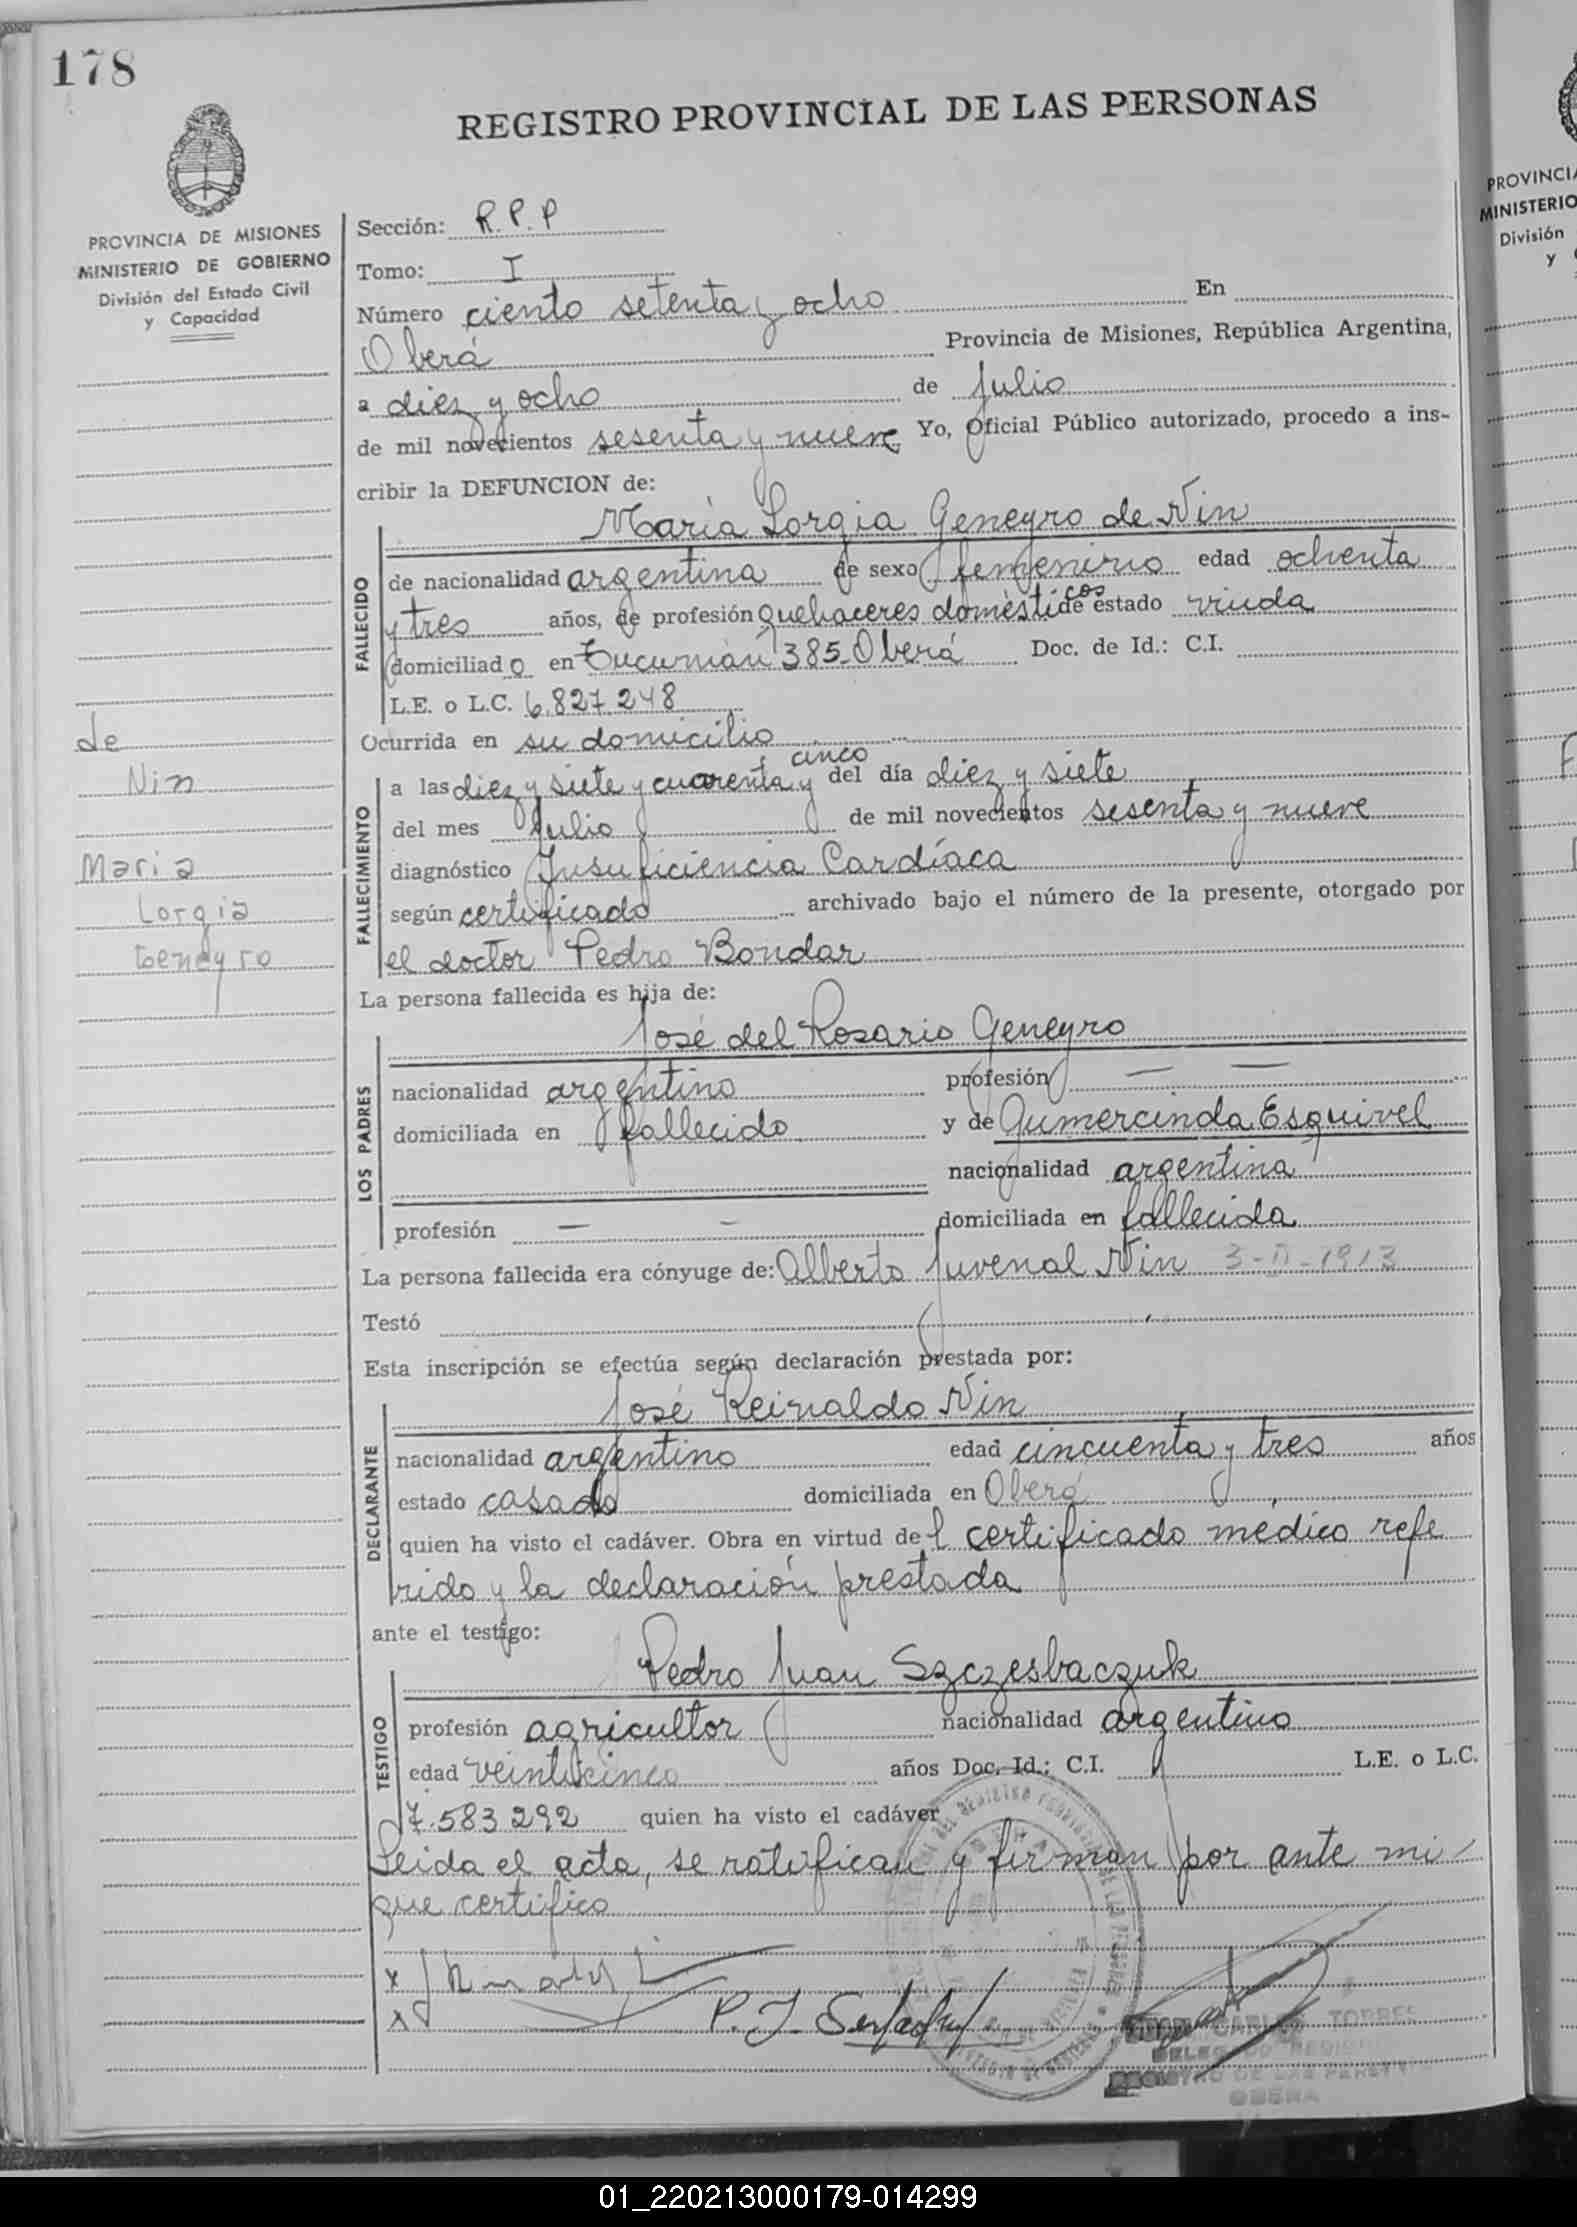 178
REGISTRO PROVINCIAL DE LAS PERSONAS
PROVINCIA DE MISIONES
MINISTERIO DE GOBIERNO
División del Estado Civil
y Capacidad
Sección: R.P.P
Tomo: I
Número ciento setenta y ocho En
Oberá Provincia de Misiones, República Argentina,
a diez y ocho de julio
de mil novecientos sesenta y nueve Yo, Oficial Público autorizado, procedo a ins-
cribir la DEFUNCION de:
María Lorgia Geneyro de Nin
FALLECIDO
de nacionalidad argentina de sexo femenino edad ochenta
y tres años, de profesión quehaceres domésticos estado viuda
domiciliado en Tucumán 385 - Oberá Doc. de Id.: C.I.
L.E. o L.C. 6.827.248
Ocurrida en su domicilio
de
Nin
Maria
Lorgia
Geneyro
FALLECIMIENTO
a las diez y siete y cuarenta y cinco del día diez y siete
del mes Julio de mil novecientos sesenta y nueve
diagnóstico Insuficiencia Cardíaca
según certificado archivado bajo el número de la presente, otorgado por
el doctor Pedro Bondar
La persona fallecida es hija de:
José del Rosario Geneyro
LOS PADRES
nacionalidad argentino profesión — —
domiciliada en fallecido y de Gumercinda Esquivel
nacionalidad argentina
profesión — - domiciliada en fallecida
La persona fallecida era cónyuge de: Alberto Juvenal Nin 3-II-1913
Testó
Esta inscripción se efectúa según declaración prestada por:
José Reinaldo Nin
DECLARANTE
nacionalidad argentino edad cincuenta y tres años
estado casado domiciliada en Oberá
quien ha visto el cadáver. Obra en virtud del certificado médico refe
rido y la declaración prestada
ante el testigo:
Pedro Juan Szczesbaczuk
TESTIGO
profesión agricultor nacionalidad argentino
edad veinticinco años Doc. Id.: C.I. L.E. o L.C.
7.583.292 quien ha visto el cadáver
Leida el acta, se ratifican y firman por ante mi
que certifico
x
x
P. J.
CARLOS TORRES
REGISTRO DE LAS PERSONAS
OBERA
PROVINCIA
MINISTERIO
División
y
01_220213000179-014299